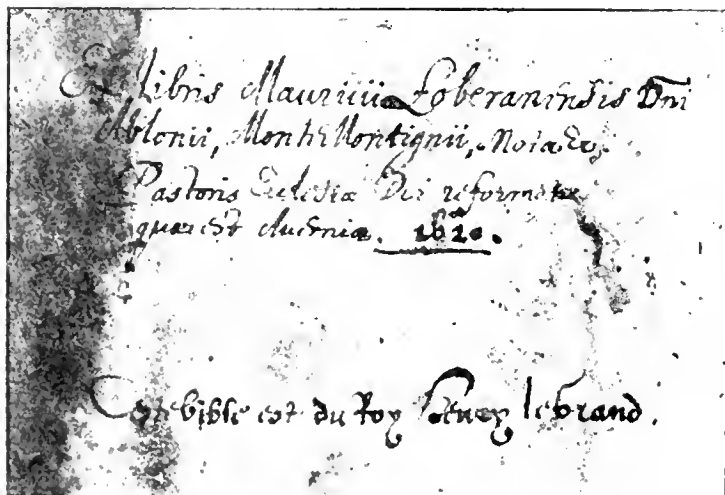 Ex Libris Mauritii Loberaninsis Dni
Ablonii, Montis Montignii,
Pastoris Eclesiæ Dei reformatæ
quæ est Avceniæ. 1620.
Ceste bible est du Roy Henry le Grand.